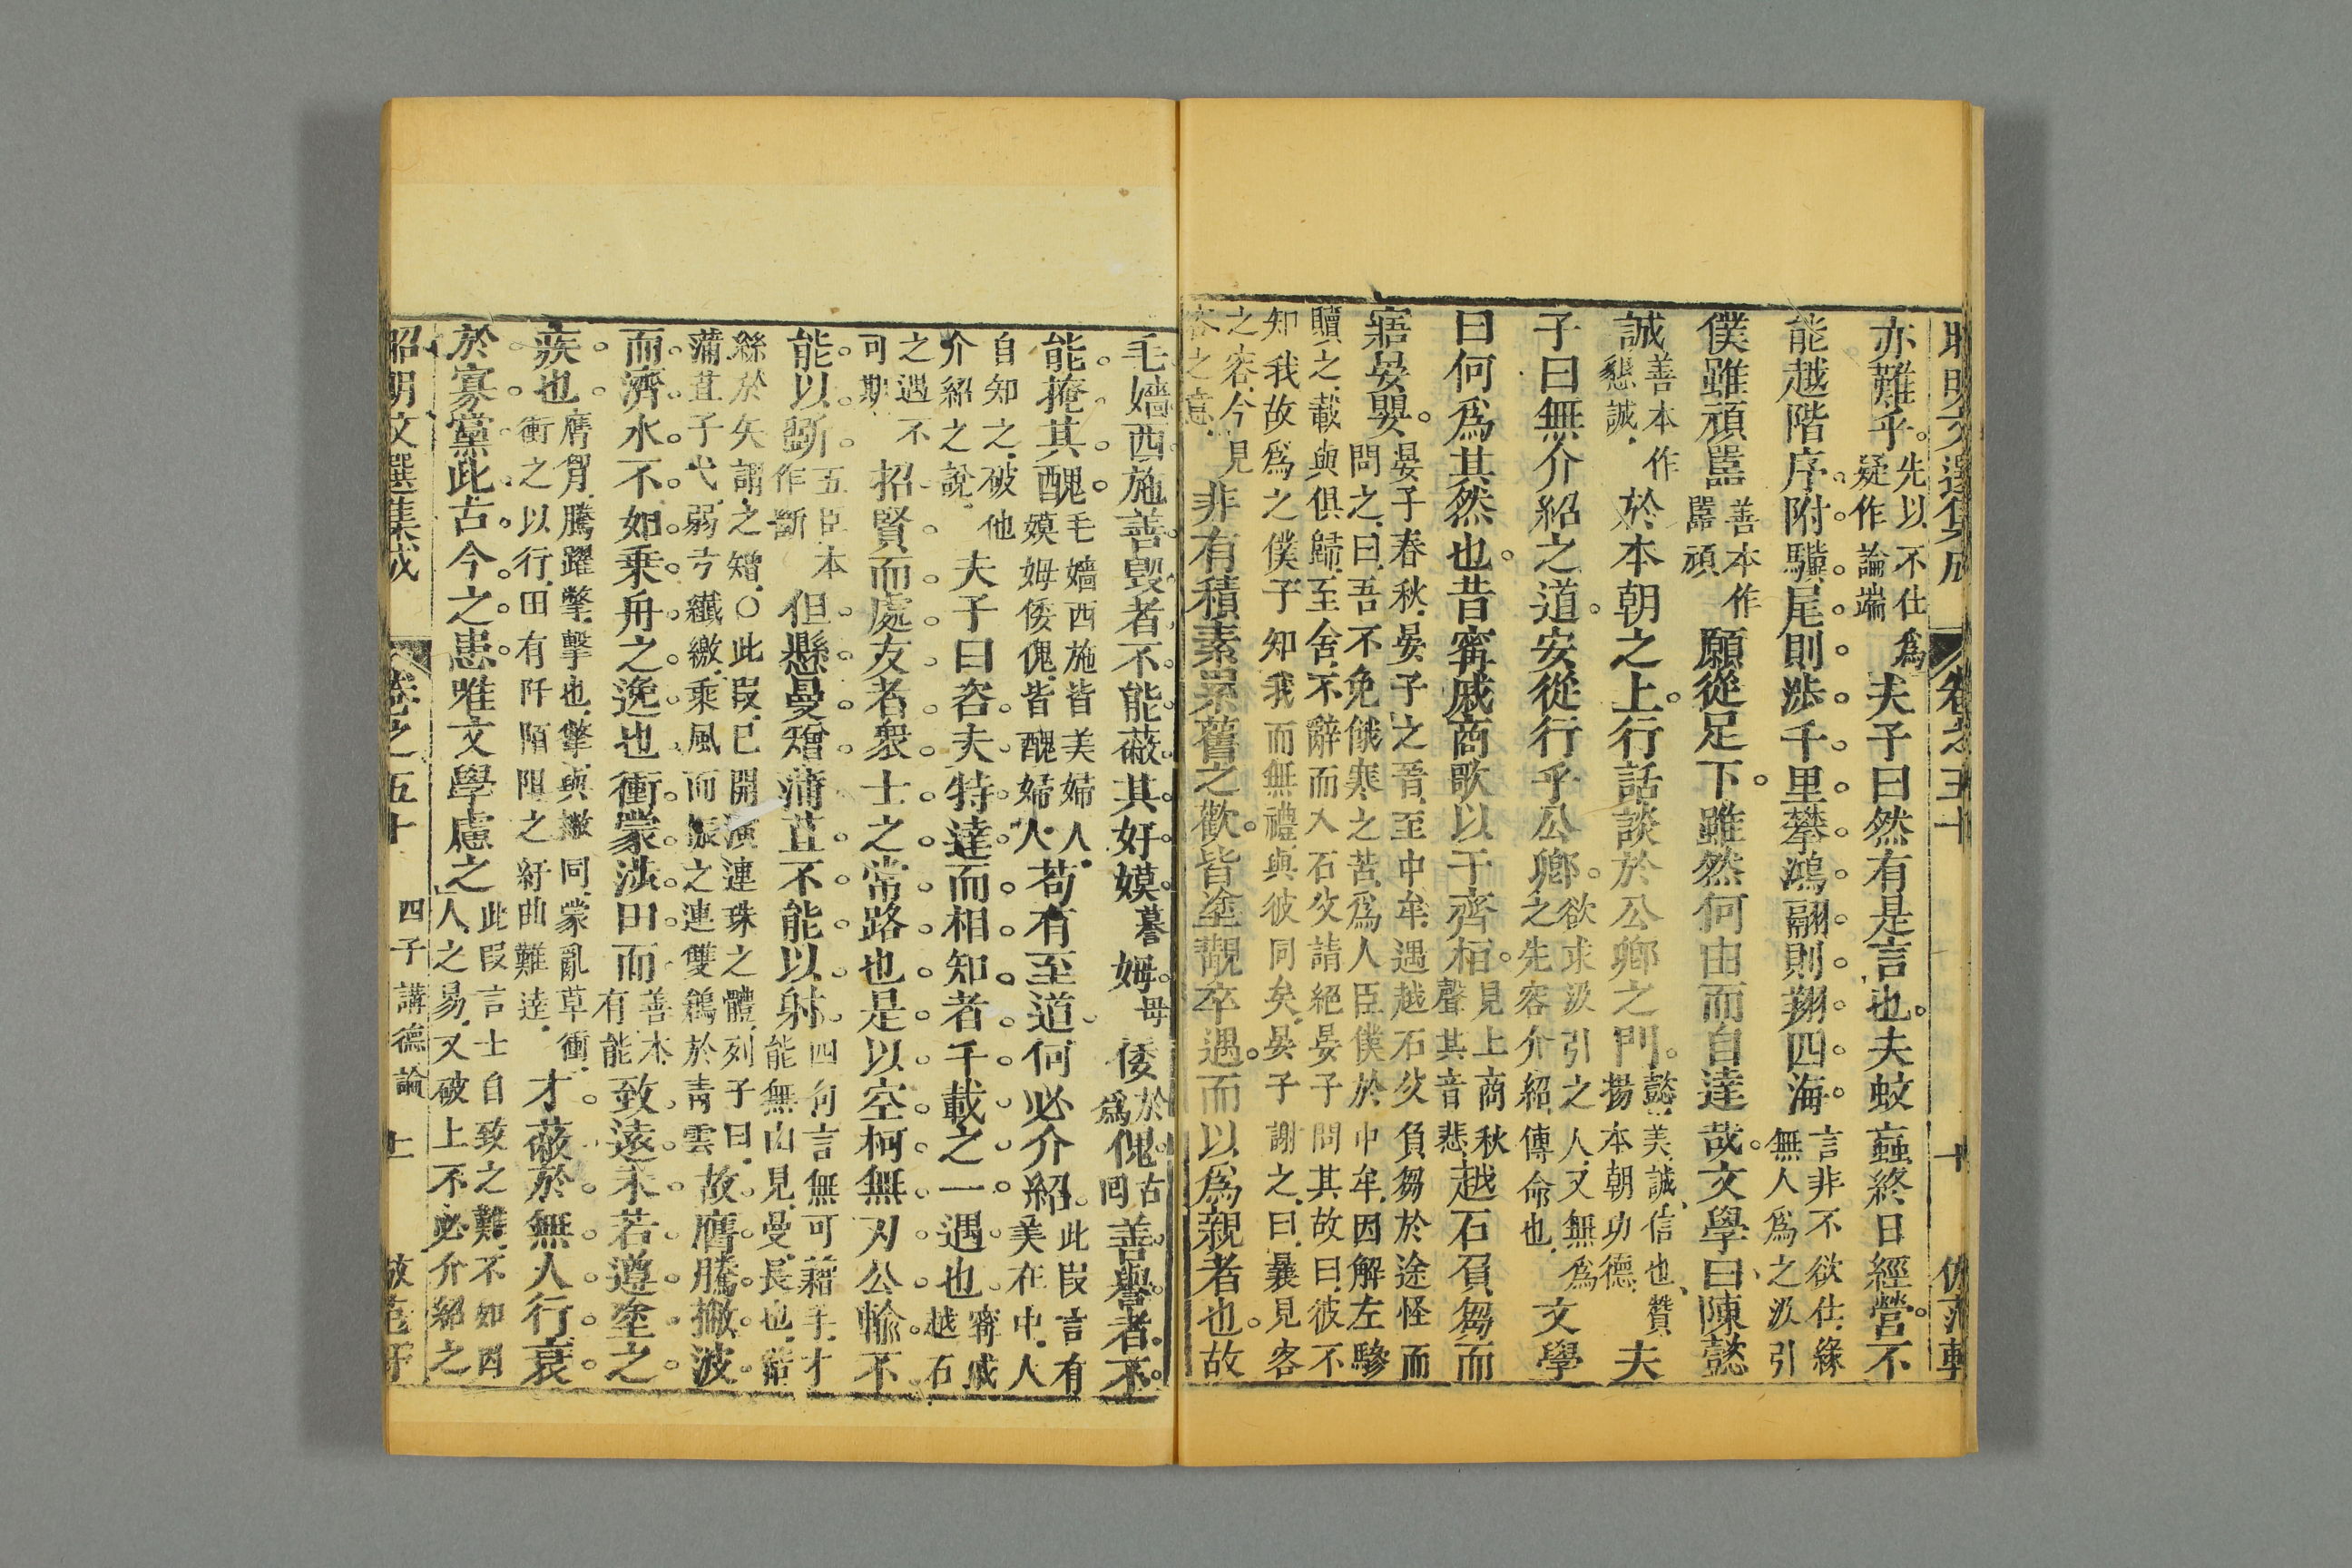 昭明文選集成 卷之五十 十 倣范軒
亦難乎。先以不仕爲疑作論端 夫子曰然有是言也。夫蚊蝱終日經營。不
能越階序。附驥尾則涉千里。攀鴻翮則翔四海。言非不欲仕緣無人爲之汲引
僕雖頑嚚善本作嚚頑 願從足下。雖然何由而自達哉。文學曰陳懿
誠善本作懇誠 於本朝之上。行話談於公卿之門。懿美誠信也贊揚本朝功德 夫
子曰無介紹之道。安從行乎公卿。欲求汲引之人又無爲之先容介紹傳命也 文學
曰何爲其然也。昔甯戚商歌以干齊桓。見上商秋聲其音悲 越石負芻而
寤晏嬰。晏子春秋晏子之晉至中牟遇越石父負芻於途怪而問之曰吾不免餓寒之苦爲人臣僕於中牟因解左驂
贖之載與俱歸至舍不辭而入石父請絕晏子問其故曰彼不知我故爲之僕子知我而無禮與彼同矣晏子謝之曰曩見客
之容今見客之意 非有積素累舊之歡。皆塗覯卒遇。而以爲親者也。故
毛嬙西施善毀者不能蔽其好。嫫暮姆母倭於爲傀古回善譽者。不
能掩其醜毛嬙西施皆美婦人嫫姆倭傀皆醜婦人 苟有至道何必介紹。此段言有美在中人
自知之破他介紹之說 夫子曰咨夫特達而相知者千載之一遇也甯戚越石
之遇不可期 招賢而處友者衆士之常路也是以空柯無刃公輸。不
能以斲五臣本作斷 但懸曼矰蒲苴不能以射四句言無可藉手才能無由見曼長也結
絲於矢謂之矰○此段已開演連珠之體列子曰蒲苴子弋弱弓纖繳乘風而振之連雙鶬於青雲 故膺騰撇波
而濟水不如乘舟之逸也衝蒙涉田而善本有能致遠未若遵塗之
疾也膺胷騰躍擎擊也擎與撇同蒙亂草衝衝之以行田有阡陌阻之紆曲難達 才蔽於無人行衰
於寡黨此古今之患唯文學慮之此段言士自致之難不如因人之易又破上不必介紹之
昭明文選集成 卷之五十 四子講德論 上 倣范軒